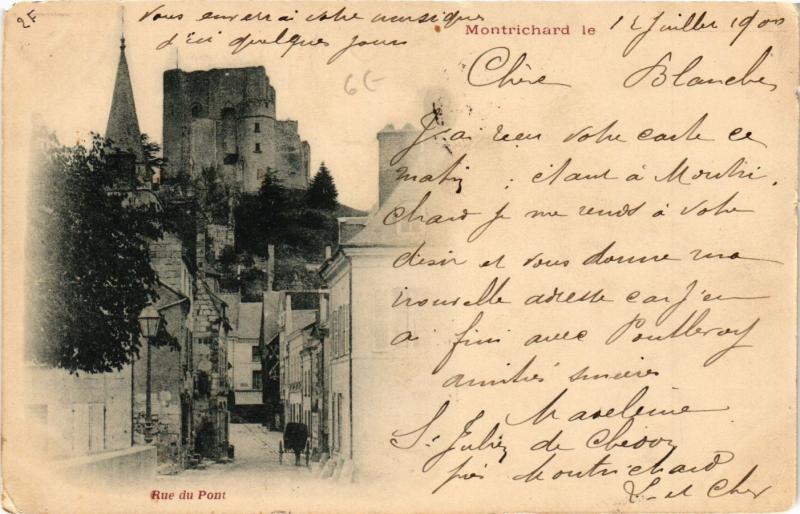 2F
Vous enverrai votre musique
d'ici quelques jours
6E
Montrichard le 12 Juillet 1900
Chère Blanche
J'ai reçu votre carte ce
matin, étant à Montri.
chard je me rends à votre
désir et vous donne ma
nouvelle adresse car j'en
ai fini avec Pontlevoy
amitiés sincères
Madeleine
St Julien de Chédon
près Montrichard
L. et Cher
Rue du Pont